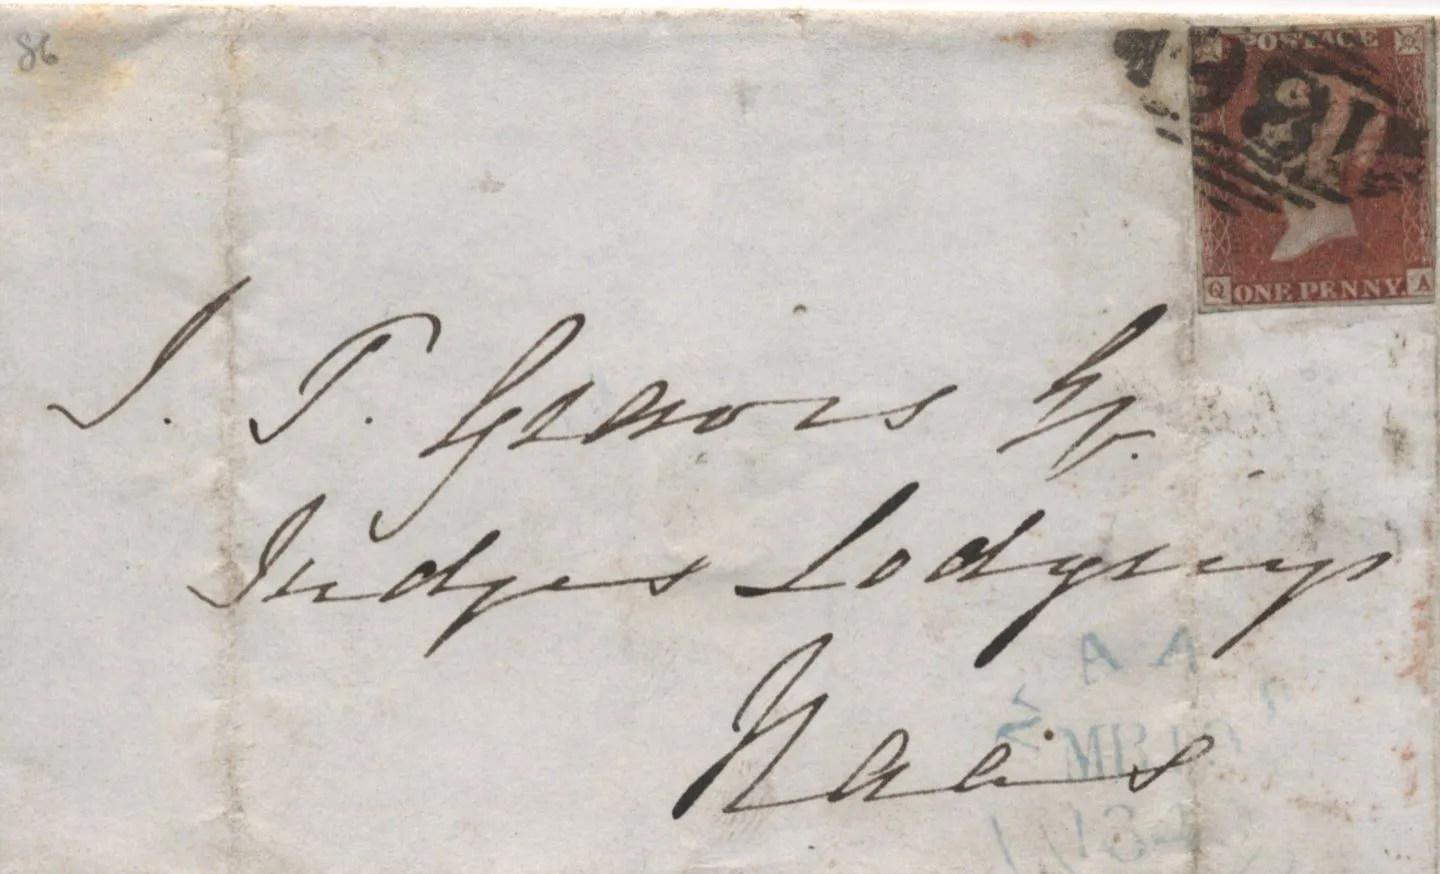 86
POSTAGE
Q ONE PENNY A
J. T. Graves Esq.
Judges Lodgings
Naas
NAAS
MR 19
184